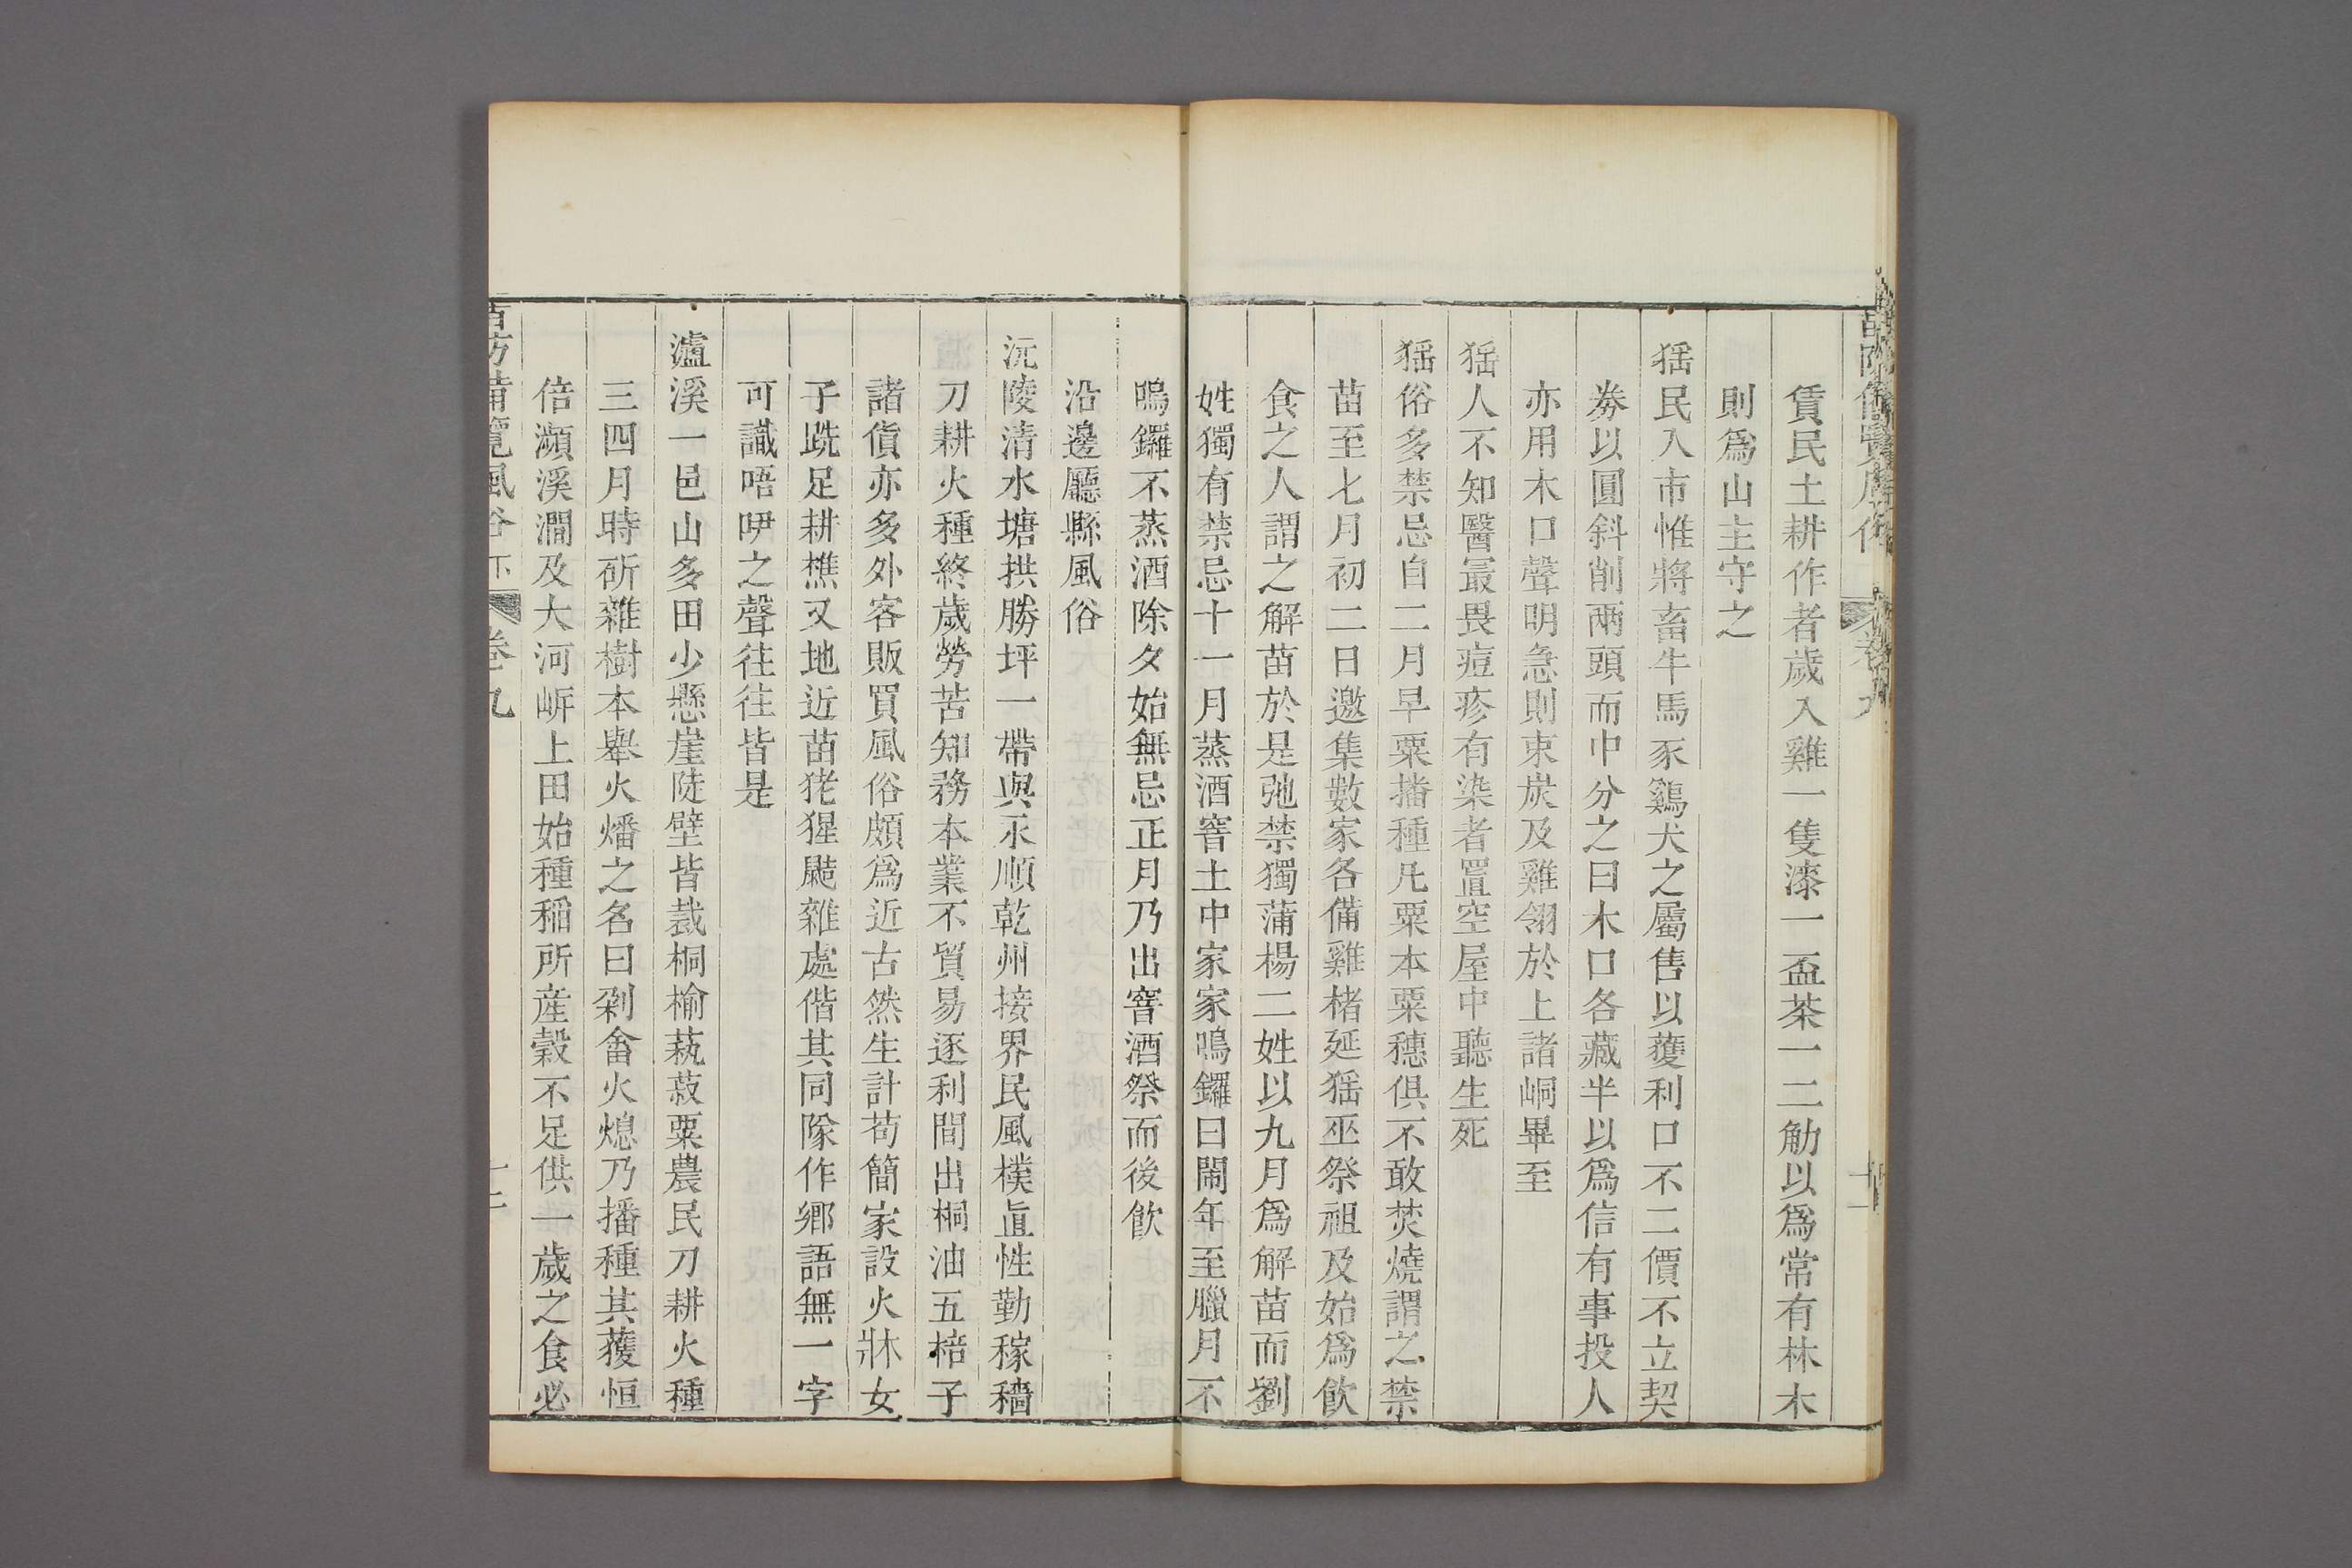 賃民土耕作者歲入雞一隻漆一盃茶一二觔以爲常有林木
則爲山主守之
猺民入市惟將畜牛馬豕鷄犬之屬售以獲利口不二價不立契
券以圓斜削兩頭而中分之曰木口各藏半以爲信有事投人
亦用木口聲明急則束炭及雞翎於上諸峒畢至
猺人不知醫最畏痘疹有染者置空屋中聽生死
猺俗多禁忌自二月早粟播種凡粟本粟穗俱不敢焚燒謂之禁
苗至七月初二日邀集數家各備雞楮延猺巫祭祖及始爲飲
食之人謂之解苗於是弛禁獨蒲楊二姓以九月爲解苗而劉
姓獨有禁忌十一月蒸酒窖土中家家鳴鑼曰鬧年至臘月不
鳴鑼不蒸酒除夕始無忌正月乃出窖酒祭而後飲
沿邊廳縣風俗
沅陵清水塘拱勝坪一帶與永順乾州接界民風樸直性勤稼穡
刀耕火種終歲勞苦知務本業不貿易逐利間出桐油五棓子
諸貨亦多外客販買風俗頗爲近古然生計苟簡家設火牀女
子跣足耕樵又地近苗狫猩鼯雜處偕其同隊作鄉語無一字
可識唔吚之聲往往皆是
瀘溪一邑山多田少懸崖陡壁皆栽桐榆蓺菽粟農民刀耕火種
三四月時斫雜樹本舉火燔之名曰剁畬火熄乃播種其獲恒
倍瀕溪澗及大河岍上田始種稲所産穀不足供一歲之食必
苗防備覽風俗下 卷九
十二